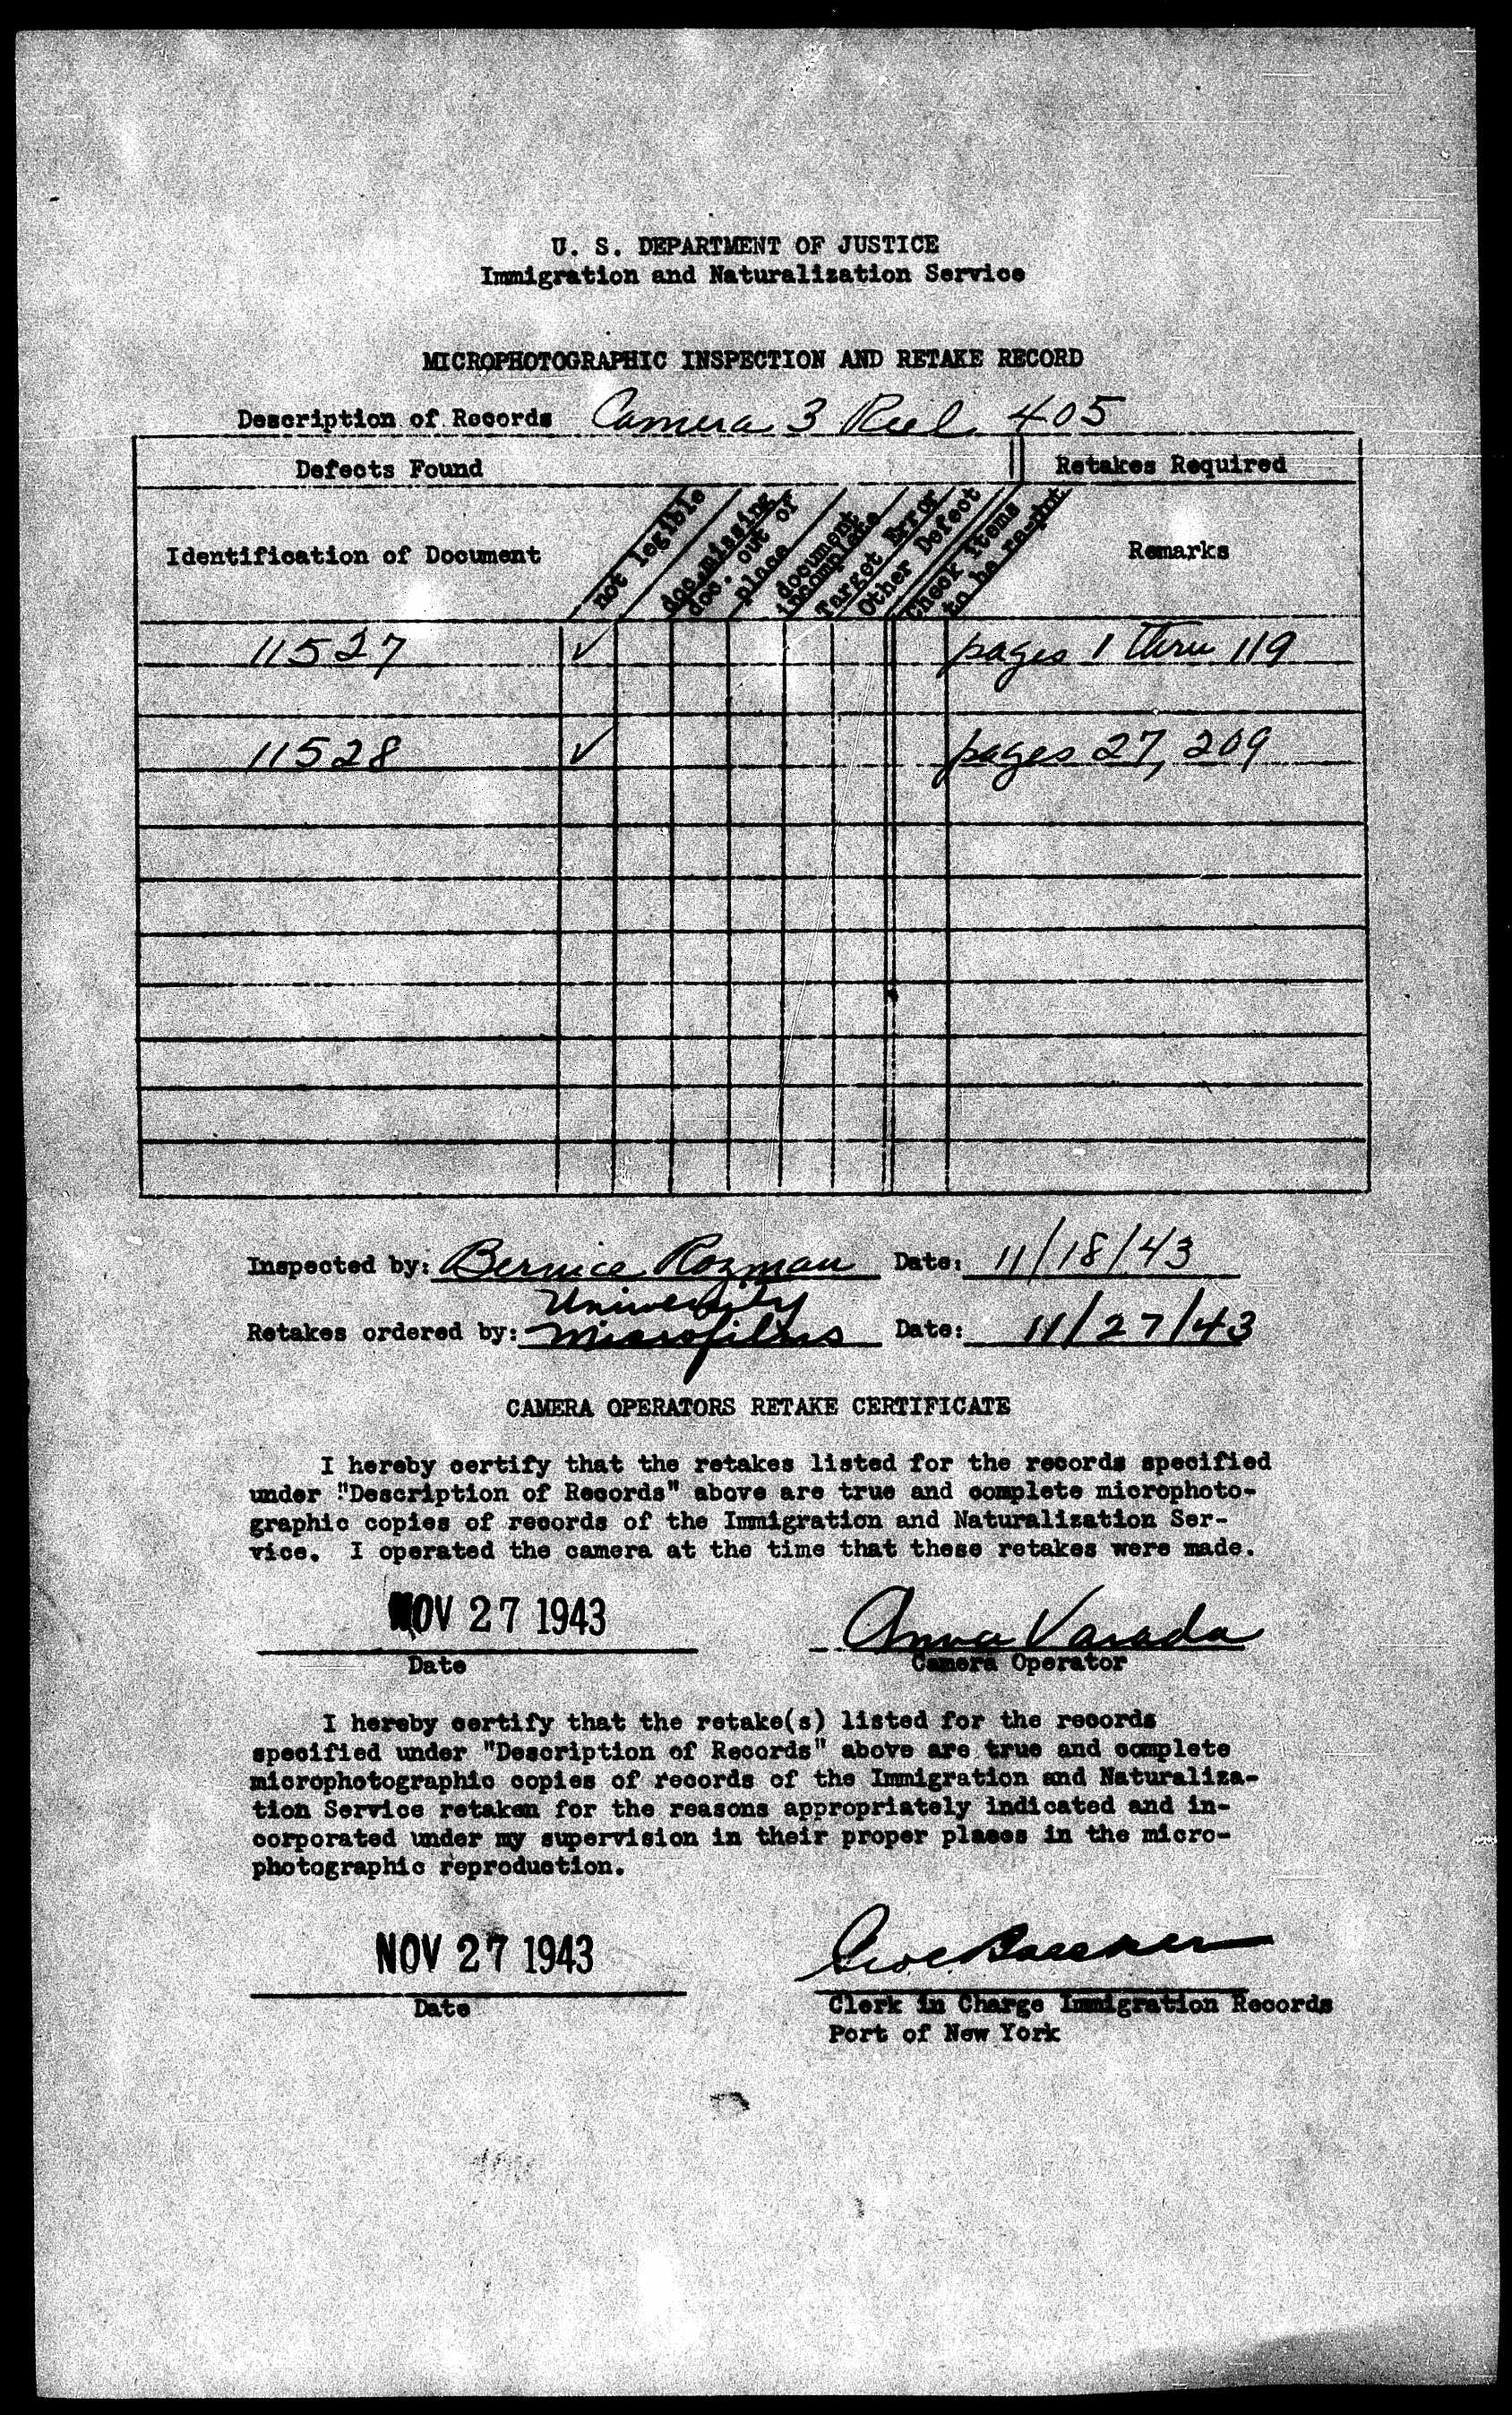 U. S. DEPARTMENT OF JUSTICE
Immigration and Naturalization Service
MICROPHOTOGRAPHIC INSPECTION AND RETAKE RECORD
Description of Records Camera 3 Reel 405
Defects Found Retakes Required
Identification of Document
not legible
doc. missing
doc. out of place
document incomplete
Target Error
Other Defect
Check items to be re-pht
Remarks
11527 ✓ pages 1 thru 119
11528 ✓ pages 27, 209
Inspected by: Bernice Rozman Date: 11/18/43
University
Retakes ordered by: Microfilms Date: 11/27/43
CAMERA OPERATORS RETAKE CERTIFICATE
I hereby certify that the retakes listed for the records specified
under "Description of Records" above are true and complete microphoto-
graphic copies of records of the Immigration and Naturalization Ser-
vice. I operated the camera at the time that these retakes were made.
NOV 27 1943 Anna Varada
Date Camera Operator
I hereby certify that the retake(s) listed for the records
specified under "Description of Records" above are true and complete
microphotographic copies of records of the Immigration and Naturaliza-
tion Service retaken for the reasons appropriately indicated and in-
corporated under my supervision in their proper places in the micro-
photographic reproduction.
NOV 27 1943
Date Clerk in Charge Immigration Records
Port of New York